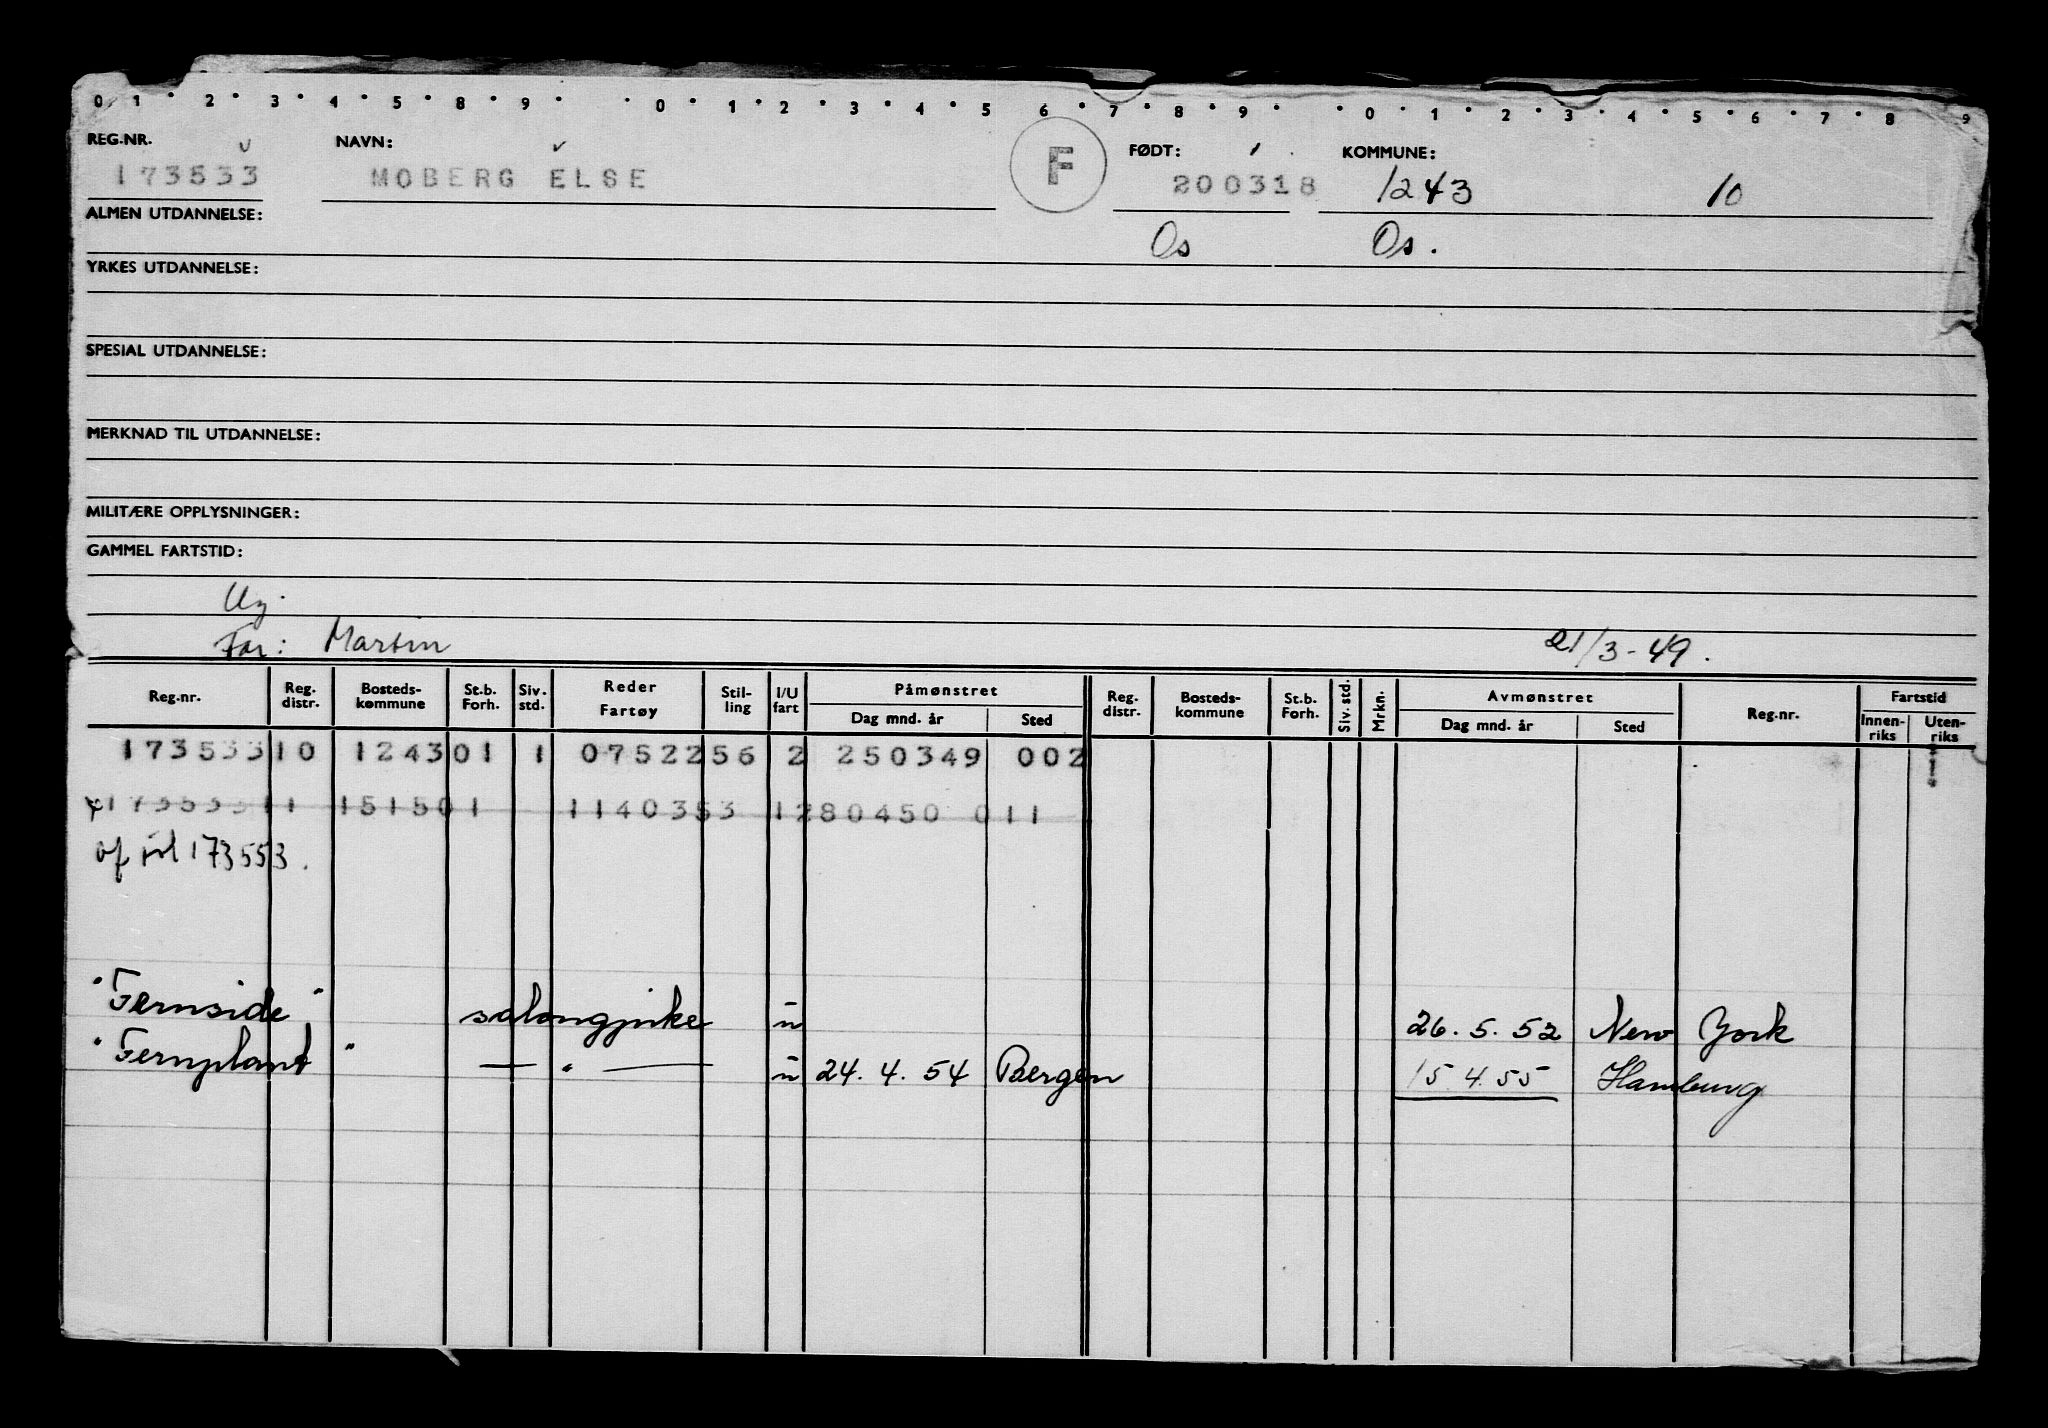 0 1 2 3 4 5 8 9 0 1 2 3 4 5 6 7 8 9 0 1 2 3 4 5 6 7 8 9
REG.NR. NAVN: FØDT: KOMMUNE:
173533 MOBERG ELSE F 200318 1243 10
ALMEN UTDANNELSE: Os Os.
YRKES UTDANNELSE:
SPESIAL UTDANNELSE:
MERKNAD TIL UTDANNELSE:
MILITÆRE OPPLYSNINGER:
GAMMEL FARTSTID:
Ug.
Far: Martin 21/3-49.
Reg.nr. Reg. distr. Bosteds-kommune St.b. Forh. Siv. std. Reder Fartøy Stil-ling I/U fart Påmønstret Dag mnd. år Sted Reg. distr. Bosteds-kommune St.b. Forh. Siv. std. Mrkn. Avmønstret Dag mnd. år Sted Reg.nr. Fartstid Innen-riks Uten-riks
173533 10 1243 01 1 0752256 2 250349 002
173533 11 1515 01 1140353 1 280450 011
173553.
"Fernside" salongpike u 26.5.52 New York
"Fernplant" — " — u 24.4.54 Bergen 15.4.55 Hamburg